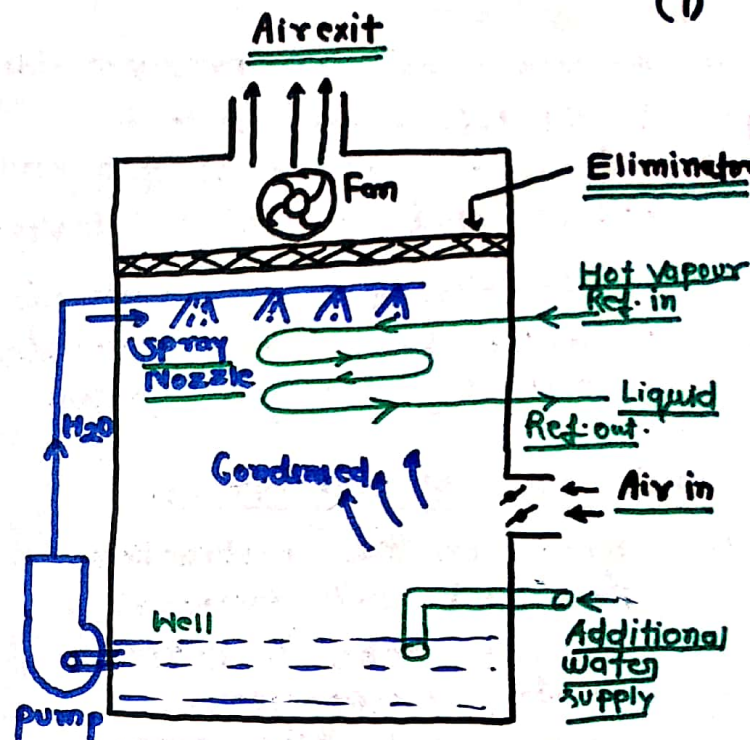 (1)
Air exit
Fan
Eliminator
Hot Vapour
Ref. in
Spray
Nozzle
H2O
Liquid
Ref. out.
Condensed
Air in
Well
Additional
water
supply
pump